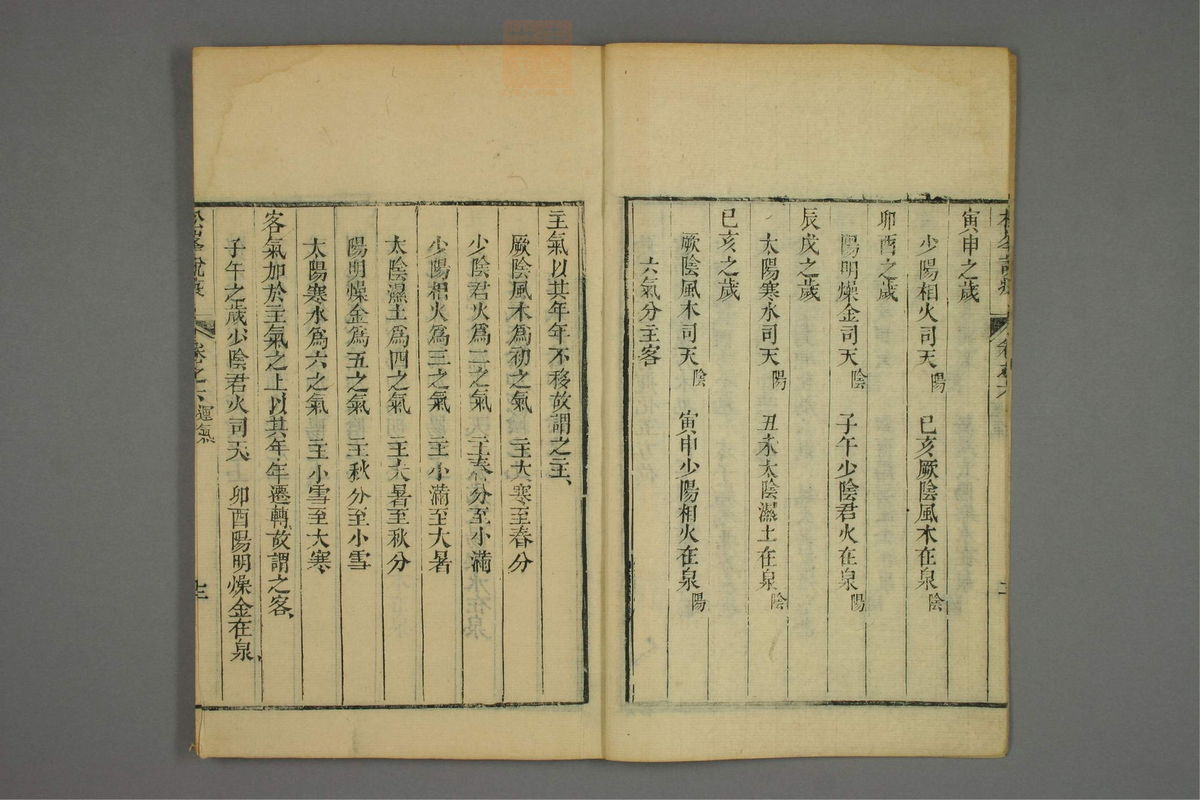 寅申之歲
少陽相火司天陽 巳亥厥陰風木在泉陰
卯酉之歲
陽明燥金司天陰 子午少陰君火在泉陽
辰戌之歲
太陽寒水司天陽 丑未太陰濕土在泉陰
巳亥之歲
厥陰風木司天陰 寅申少陽相火在泉陽
六氣分主客
主氣以其年年不移故謂之主、
厥陰風木爲初之氣 主大寒至春分
少陰君火爲二之氣 主春分至小滿
少陽相火爲三之氣 主小滿至大暑
太陰濕土爲四之氣 主大暑至秋分
陽明燥金爲五之氣 主秋分至小雪
太陽寒水爲六之氣 主小雪至大寒、
客氣加於主氣之上以其年年遷轉故謂之客、
子午之歲少陰君火司天、卯酉陽明燥金在泉、
松峯說疫 卷之六 運氣